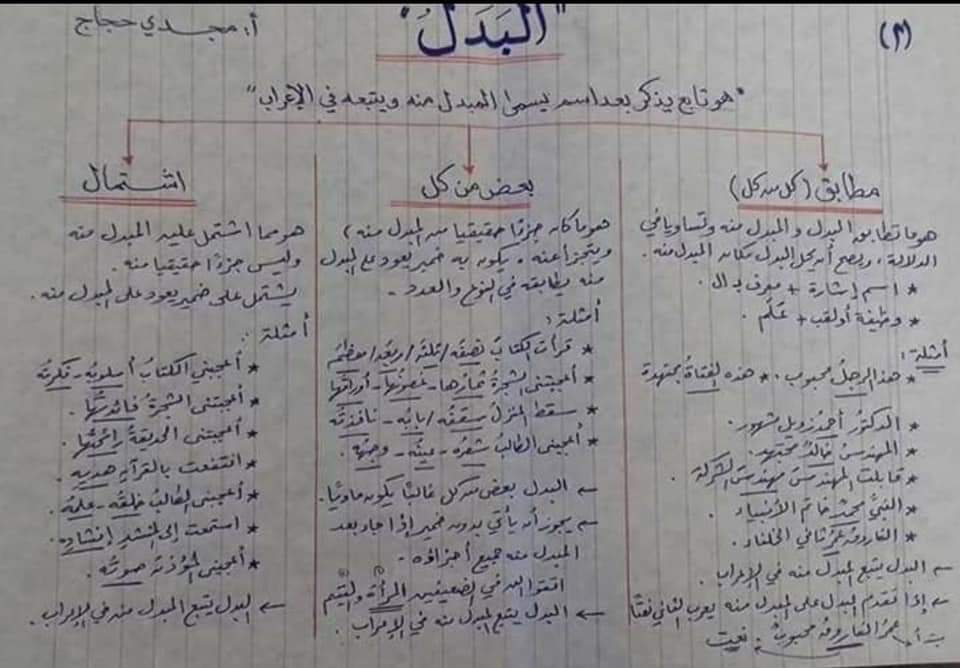 (٣)
"البَدَلُ"
أ: مجدي حجاج
"هو تابع يذكر بعد اسم يسمى المبدل منه ويتبعه في الإعراب"
مطابق (كل من كل)
هو ما تطابق البدل والمبدل منه وتساويا في
الدلالة، ويصح أن يحل البدل مكان المبدل منه.
* اسم إشارة + معرف بـ ال.
* وظيفة أو لقب + عَلَم.
أمثلة:
* هذا الرجلُ محبوب. * هذه الفتاةُ مجتهدة
* الدكتورُ أحمدُ زويل مشهور.
* المهندسُ خالدٌ مجتهد.
* قابلت المهندسَ مهندسَ الشركة.
* النبيُّ محمدٌ خاتم الأنبياء
* الفاروقُ عمرُ ثاني الخلفاء.
← البدل يتبع المبدل منه في الإعراب.
← إذا تقدم البدل على المبدل منه يعرب الثاني نعتًا
عمرُ الفاروقُ محبوبٌ. نعت
بعض من كل
هو ما كان جزءًا حقيقيا من المبدل منه،
ويتجزأ عنه، يكون به ضمير يعود على المبدل
منه يطابقه في النوع والعدد -
أمثلة:
* قرأت الكتابَ نصفَه/ ثلثَه/ ربعَه/ معظمَه
* أعجبتنى الشجرةُ ثمارُها - غصونُها - أوراقُها
* سقط المنزلُ سقفُه/ بابُه - نافذتُه
* أعجبنى الطالبُ شعرُه - عينُه - وجهُه.
← البدل بعض من كل غالبًا يكون ماديًا.
← يجوز أن يأتي بدون ضمير إذا جاء بعد
المبدل منه جميع أجزاؤه -
اتقوا الله في الضعيفين المرأةِ واليتيمِ
← البدل يتبع المبدل منه في الإعراب.
اشتمال
هو ما اشتمل عليه المبدل منه
وليس جزءًا حقيقيا منه.
يشتمل على ضمير يعود على المبدل منه.
أمثلة:
* أعجبني الكتابُ أسلوبُه - فكرتُه
* أعجبتنى الشجرةُ فائدتُها.
* أعجبتنى الحديقةُ رائحتُها.
* انتفعت بالقرآنِ هديِه
* أعجبنى الطالبُ خلقُه - علمُه.
* استمعت إلى المنشدِ إنشادِه.
* أعجبنى المؤذنُ صوتُه.
← البدل يتبع المبدل منه في الإعراب.